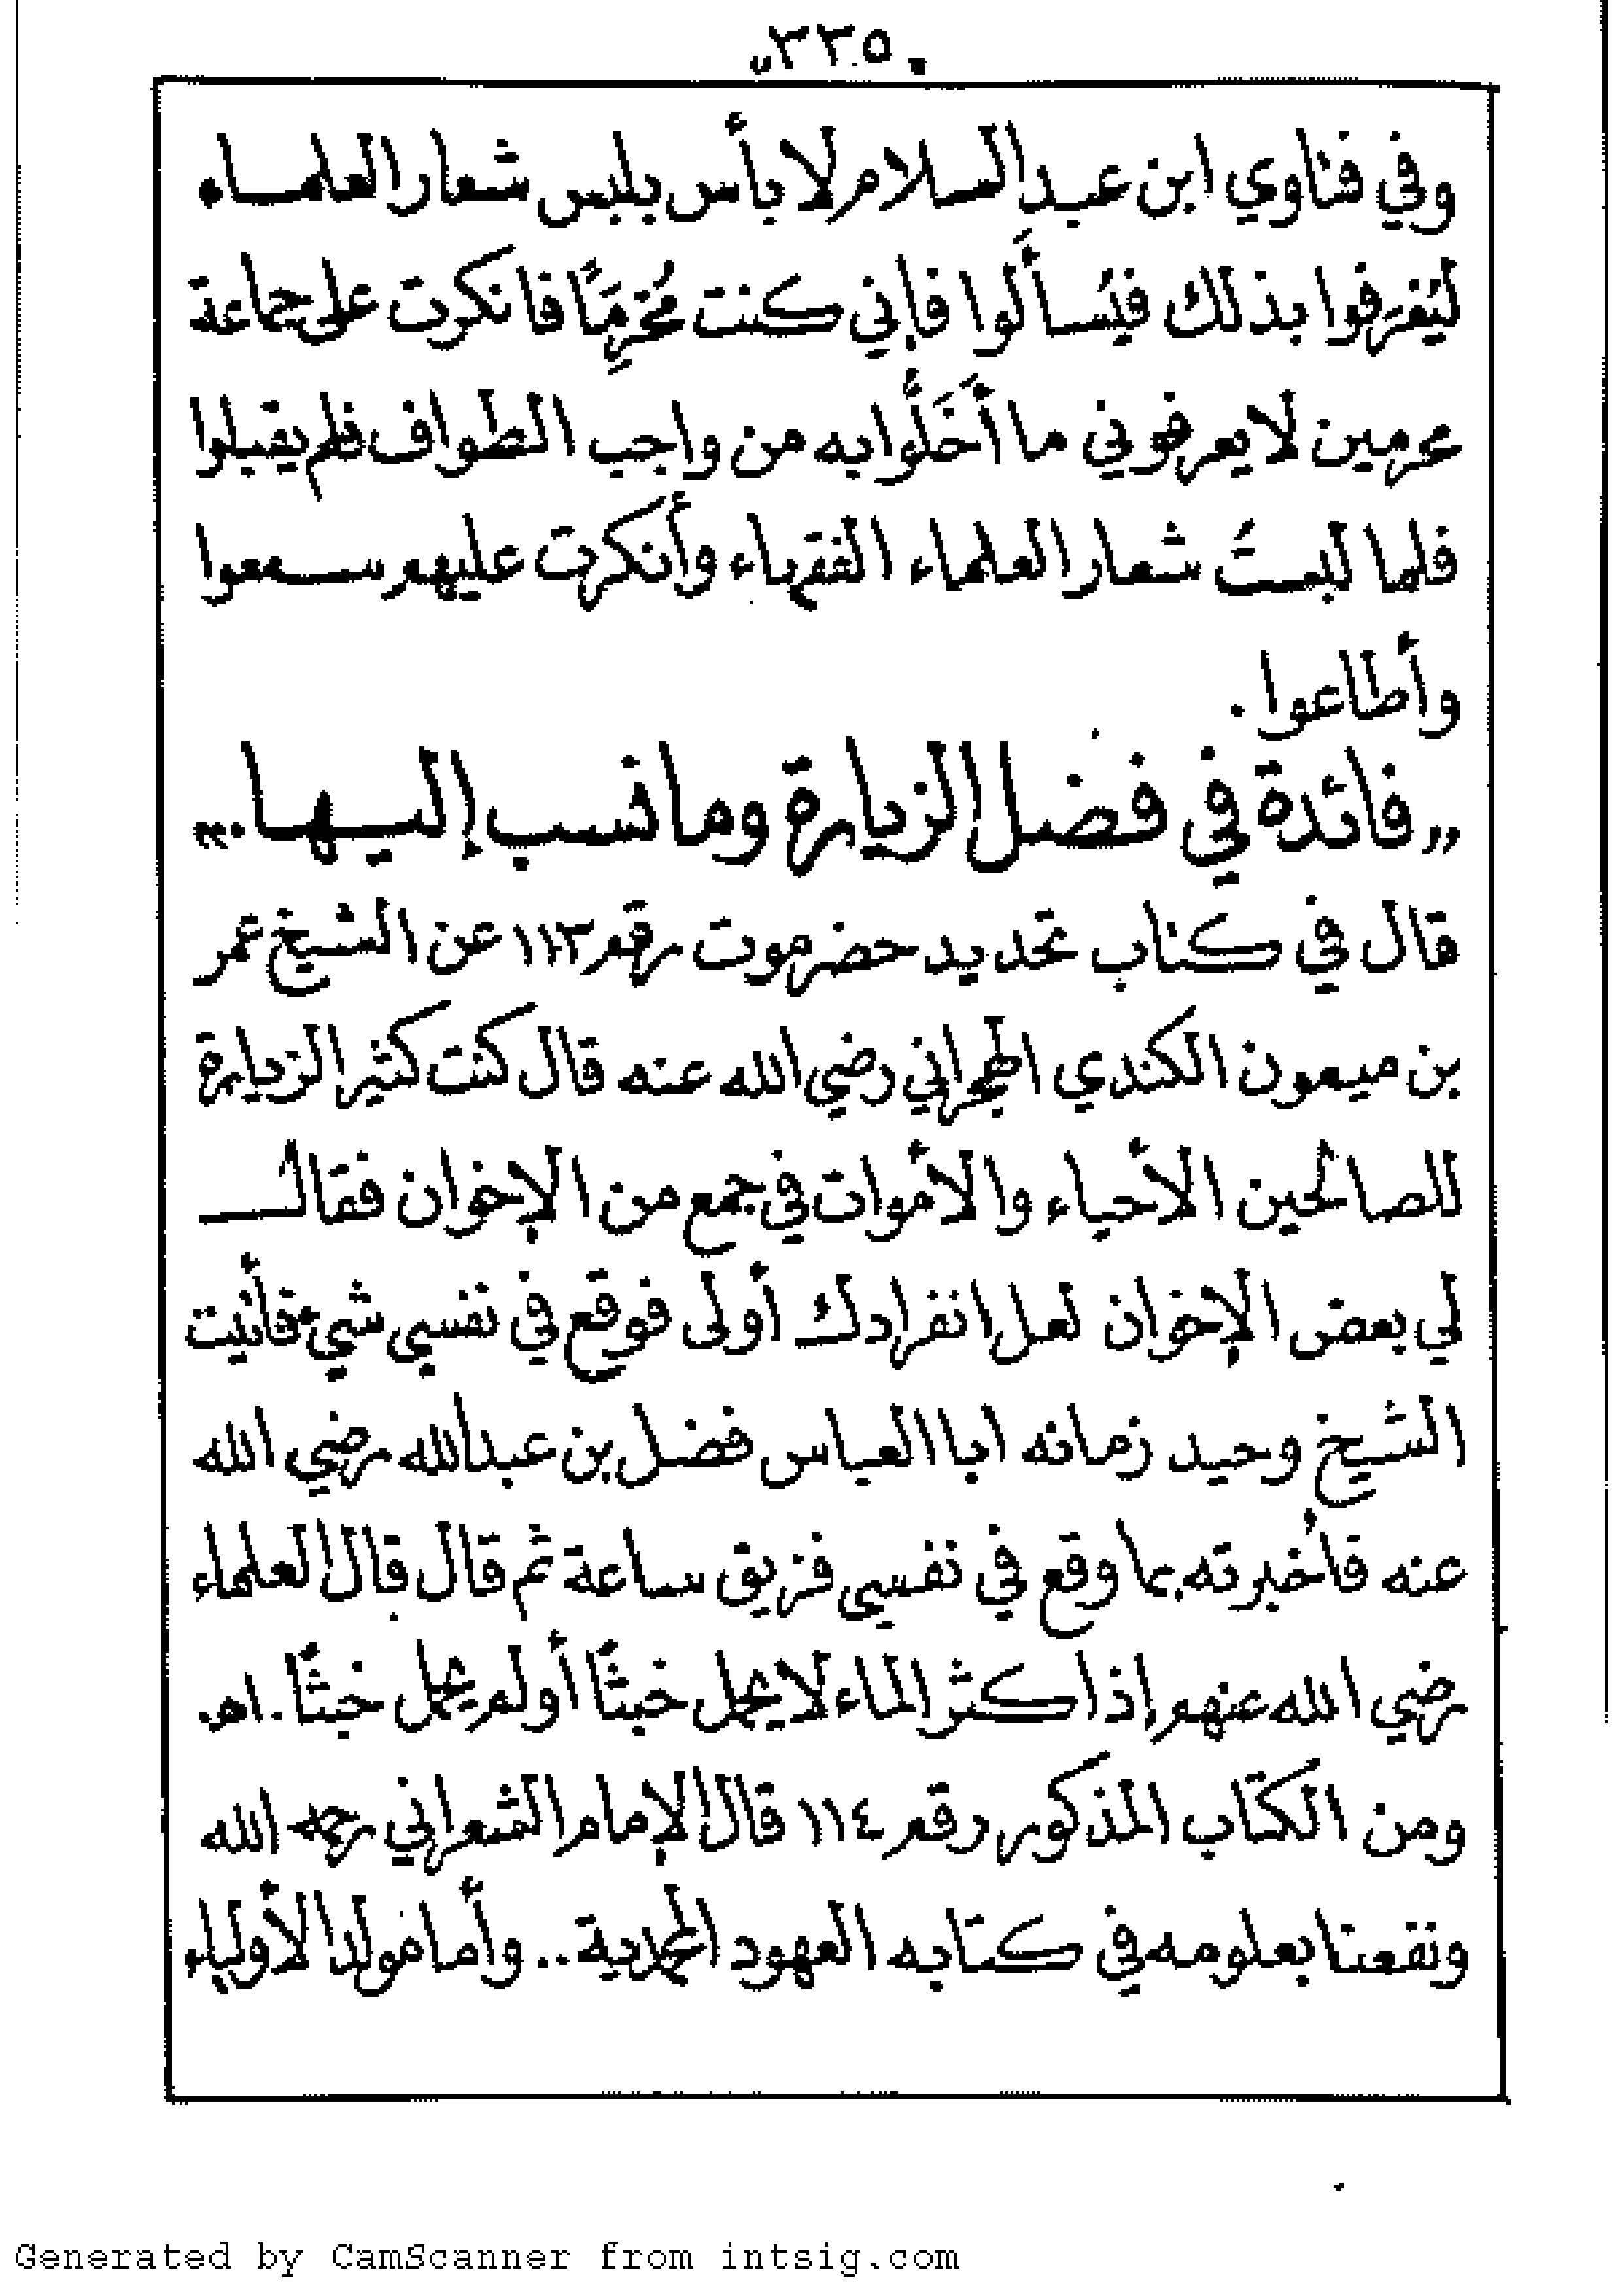 ٣٣٥
وفي فتاوي ابن عبدالسلام لا بأس بلبس شعار العلماء
ليُعْرَفوا بذلك فيُسألَوا فإني كنت مُحْرِمًا فانكرت على جماعة
محرمين لا يعرفوني ما أَخَلُّوا به من واجب الطواف فلم يقبلوا
فلما لبستُ شعار العلماء الفقهاء وأنكرت عليهم سمعوا
وأطاعوا .
"فائدة في فضل الزيارة وما نسب إليها."
قال في كتاب تحديد حضرموت رقم ١١٣ عن الشيخ عمر
بن ميمون الكندي الهجراني رضي الله عنه قال كنت كثير الزيارة
للصالحين الأحياء والأموات في جمع من الإخوان فقال
لي بعض الإخوان لعل انفرادك أولى فوقع في نفسي شيء فأتيت
الشيخ وحيد زمانه ابا العباس فضل بن عبدالله رضي الله
عنه فأخبرته بما وقع في نفسي فزيق ساعة ثم قال قال العلماء
رضي الله عنهم إذا كثر الماء لا يحمل خبثًا أو لم يحمل خبثًا . اهـ.
ومن الكتاب المذكور رقم ١١٤ قال الإمام الشعراني رحمه الله
ونفعنا بعلومه في كتابه العهود المحمدية .. وأما مولد الأولياء
Generated by CamScanner from intsig.com